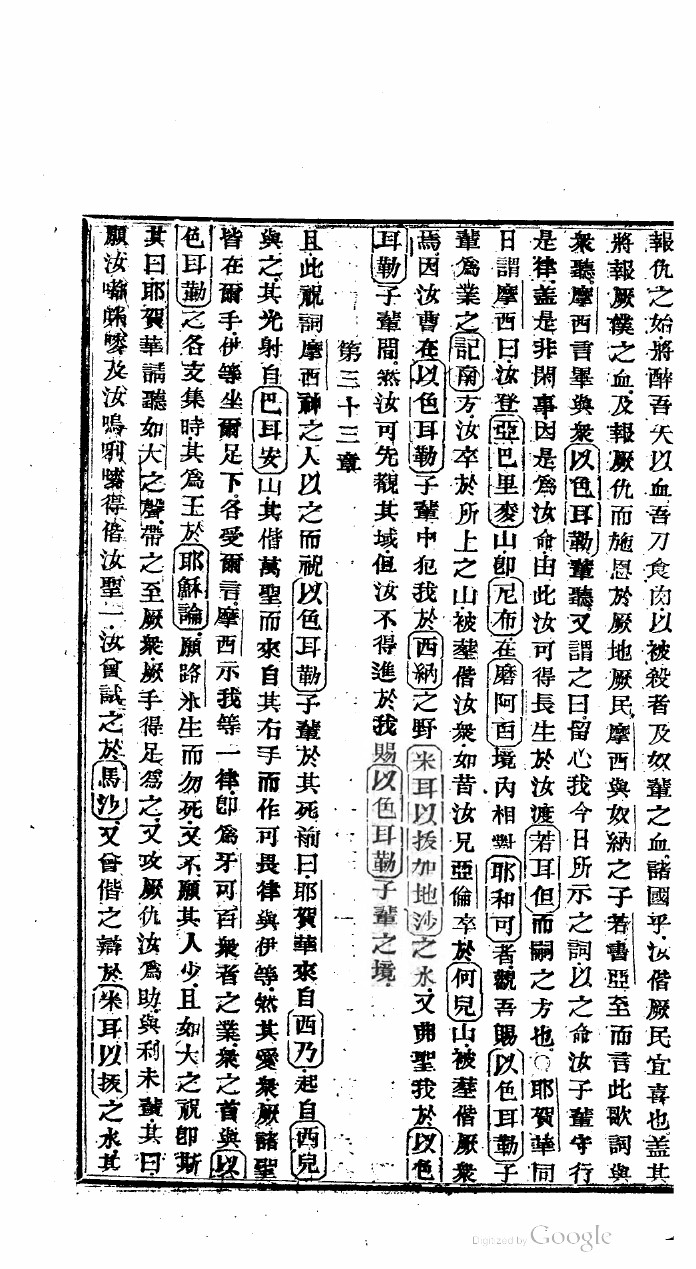 報仇之始將醉吾矢以血吾刀食肉以被殺者及奴輩之血諸國乎汝偕厥民宜喜也蓋其
將報厥僕之血及報厥仇而施恩於厥地厥民摩西與奴納之子若書亞至而言此歌詞與
衆聽摩西言畢與衆以色耳勒輩聽又謂之曰留心我今日所示之詞以之命汝子輩守行
是律蓋是非閑事因是爲汝命由此汝可得長生於汝渡若耳但而嗣之方也○耶賀華同
日謂摩西曰汝登亞巴里麥山卽尼布在磨阿百境內相對耶利可者觀吾賜以色耳勒子
輩爲業之記南方汝卒於所上之山被塟偕汝衆如昔汝兄亞倫卒於何兒山被塟偕厥衆
焉因汝曹在以色耳勒子輩中犯我於西納之野米耳以拔加地沙之水又弗聖我於以色
耳勒子輩間然汝可先觀其域但汝不得進於我賜以色耳勒子輩之境
第三十三章
且此祝詞摩西神之人以之而祝以色耳勒子輩於其死前曰耶賀華來自西乃起自西兒
與之其光射自巴耳安山其偕萬聖而來自其右手而作可畏律與伊等然其愛衆厥諸聖
皆在爾手伊等坐爾足下各受爾言摩西示我等一律卽爲牙可百衆者之業衆之首與以
色耳勒之各支集時其爲王於耶穌論願路氷生而勿死又不願其人少且如大之祝卽斯
其曰耶賀華請聽如大之聲帶之至厥衆厥手得足爲之又攻厥仇汝爲助與利未輩其曰
願汝及汝得偕汝聖一汝曾試之於馬沙又曾偕之辯於米耳以拔之水其